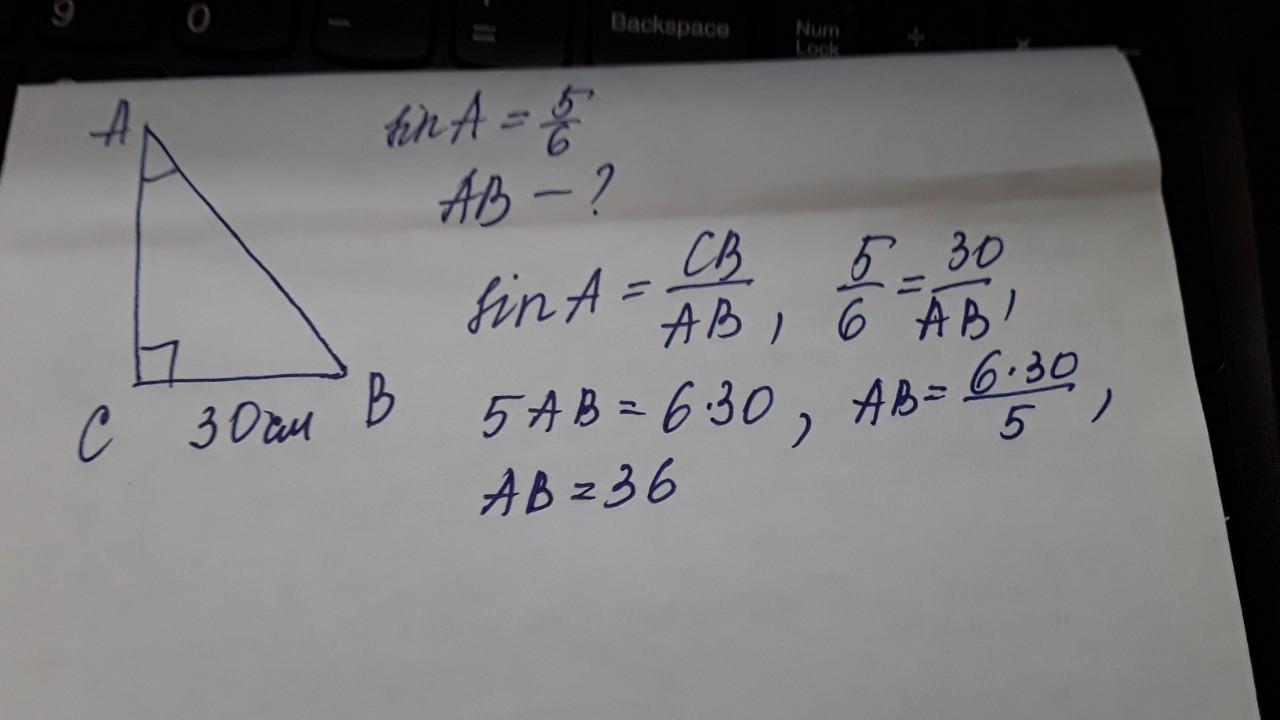 9 0 – = Backspace Num Lock +
A
sin A = 5/6
AB – ?
sin A = CB/AB, 5/6 = 30/AB,
C 30 см B
5 AB = 6·30, AB = 6·30/5,
AB = 36